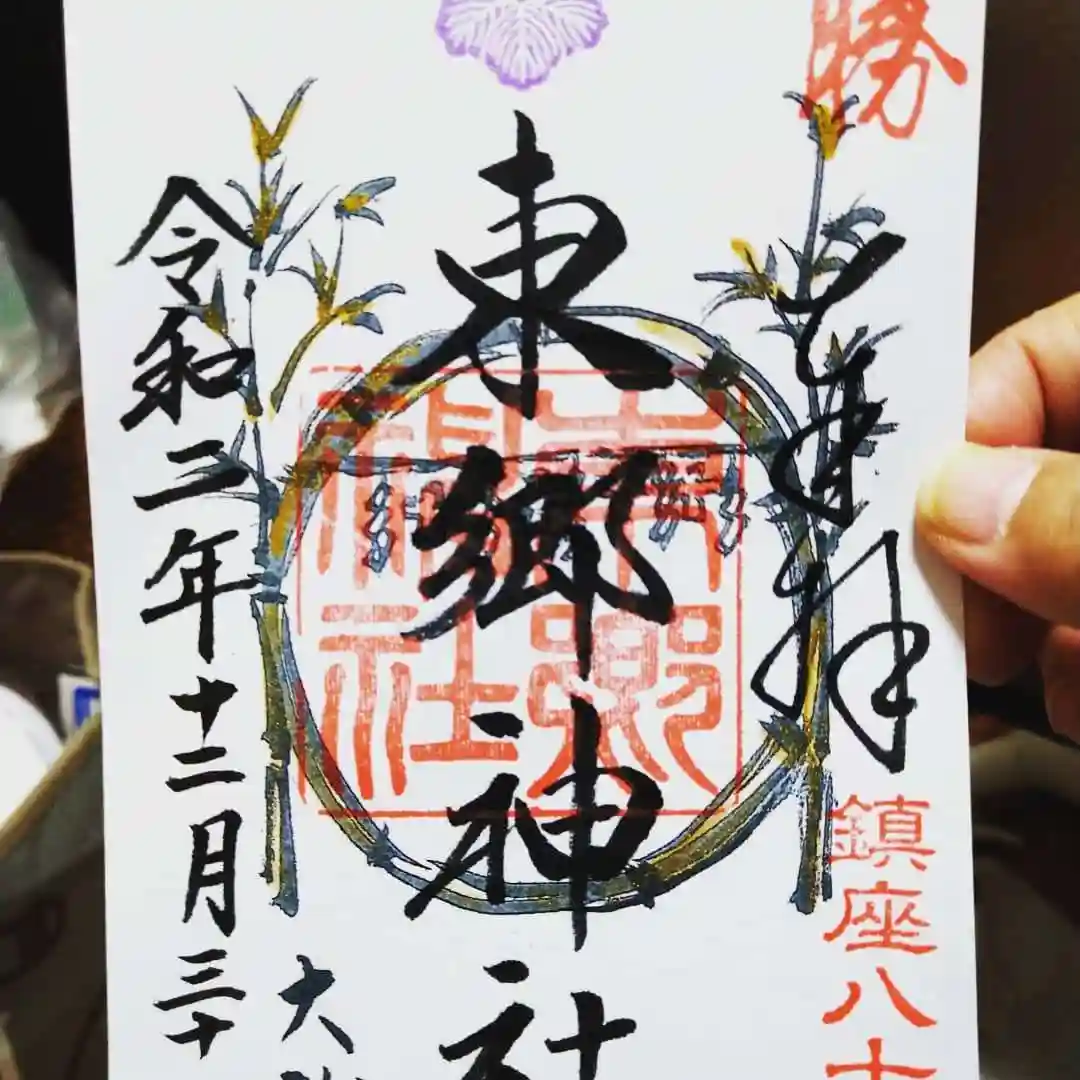 勝
奉拝
鎮座八十
東郷神社
東郷
神社
大
令和二年十二月三十